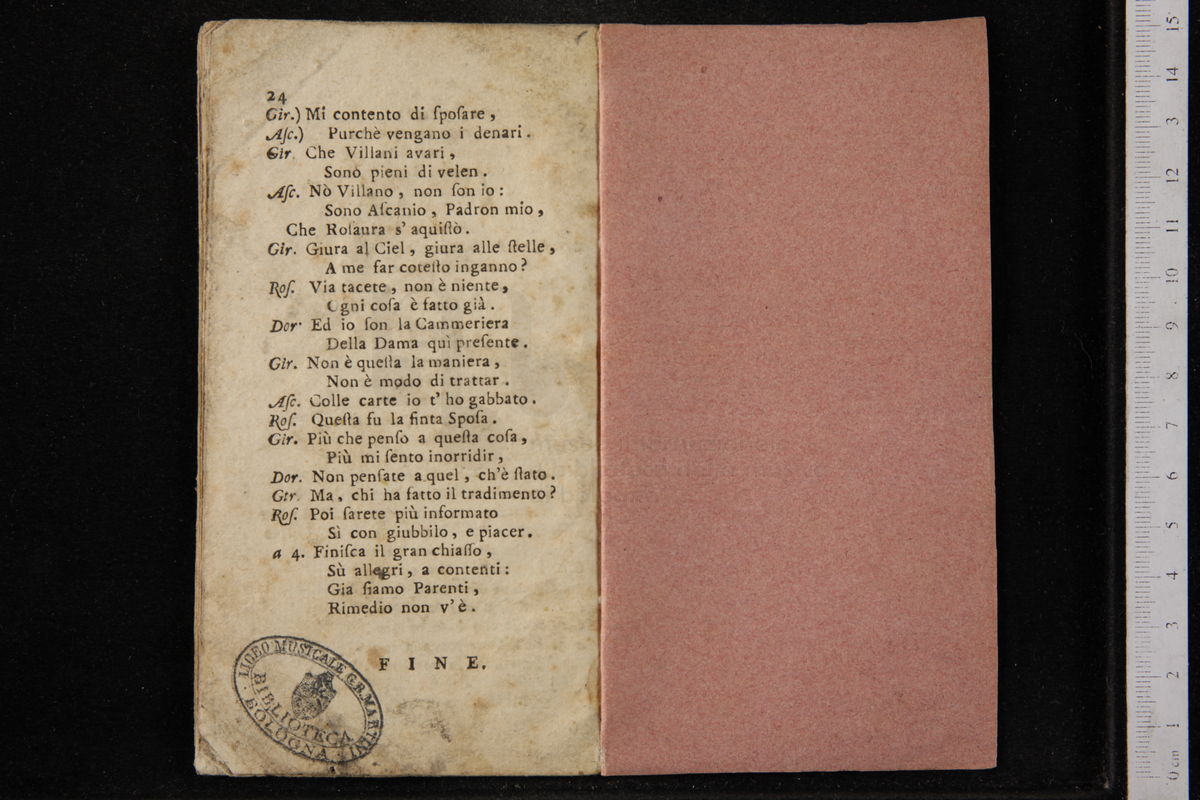 24
Gir.) Mi contento di ſpoſare ,
Aſc.) Purchè vengano i denari .
Gir. Che Villani avari ,
Sono pieni di velen .
Aſc. Nò Villano , non ſon io :
Sono Aſcanio , Padron mio ,
Che Roſaura s' aquiſtò .
Gir. Giura al Ciel , giura alle ſtelle ,
A me far coteſto inganno ?
Roſ. Via tacete , non è niente ,
Ogni coſa è fatto già .
Dor. Ed io ſon la Cammeriera
Della Dama quì preſente .
Gir. Non è queſta la maniera ,
Non è modo di trattar .
Aſc. Colle carte io t' ho gabbato .
Roſ. Queſta fu la finta Spoſa .
Gir. Più che penſo a queſta coſa ,
Più mi ſento inorridir ,
Dor. Non penſate a quel , ch'è ſtato .
Gir. Ma , chi ha fatto il tradimento ?
Roſ. Poi ſarete più informato
Sì con giubbilo , e piacer .
a 4. Finiſca il gran chiaſſo ,
Sù allegri , a contenti :
Gia ſiamo Parenti ,
Rimedio non v' è .
FINE.
LICEO MUSICALE G.B. MARTINI
BIBLIOTECA
BOLOGNA
15
14
13
12
11
10
9
8
7
6
5
4
3
2
1
0 cm